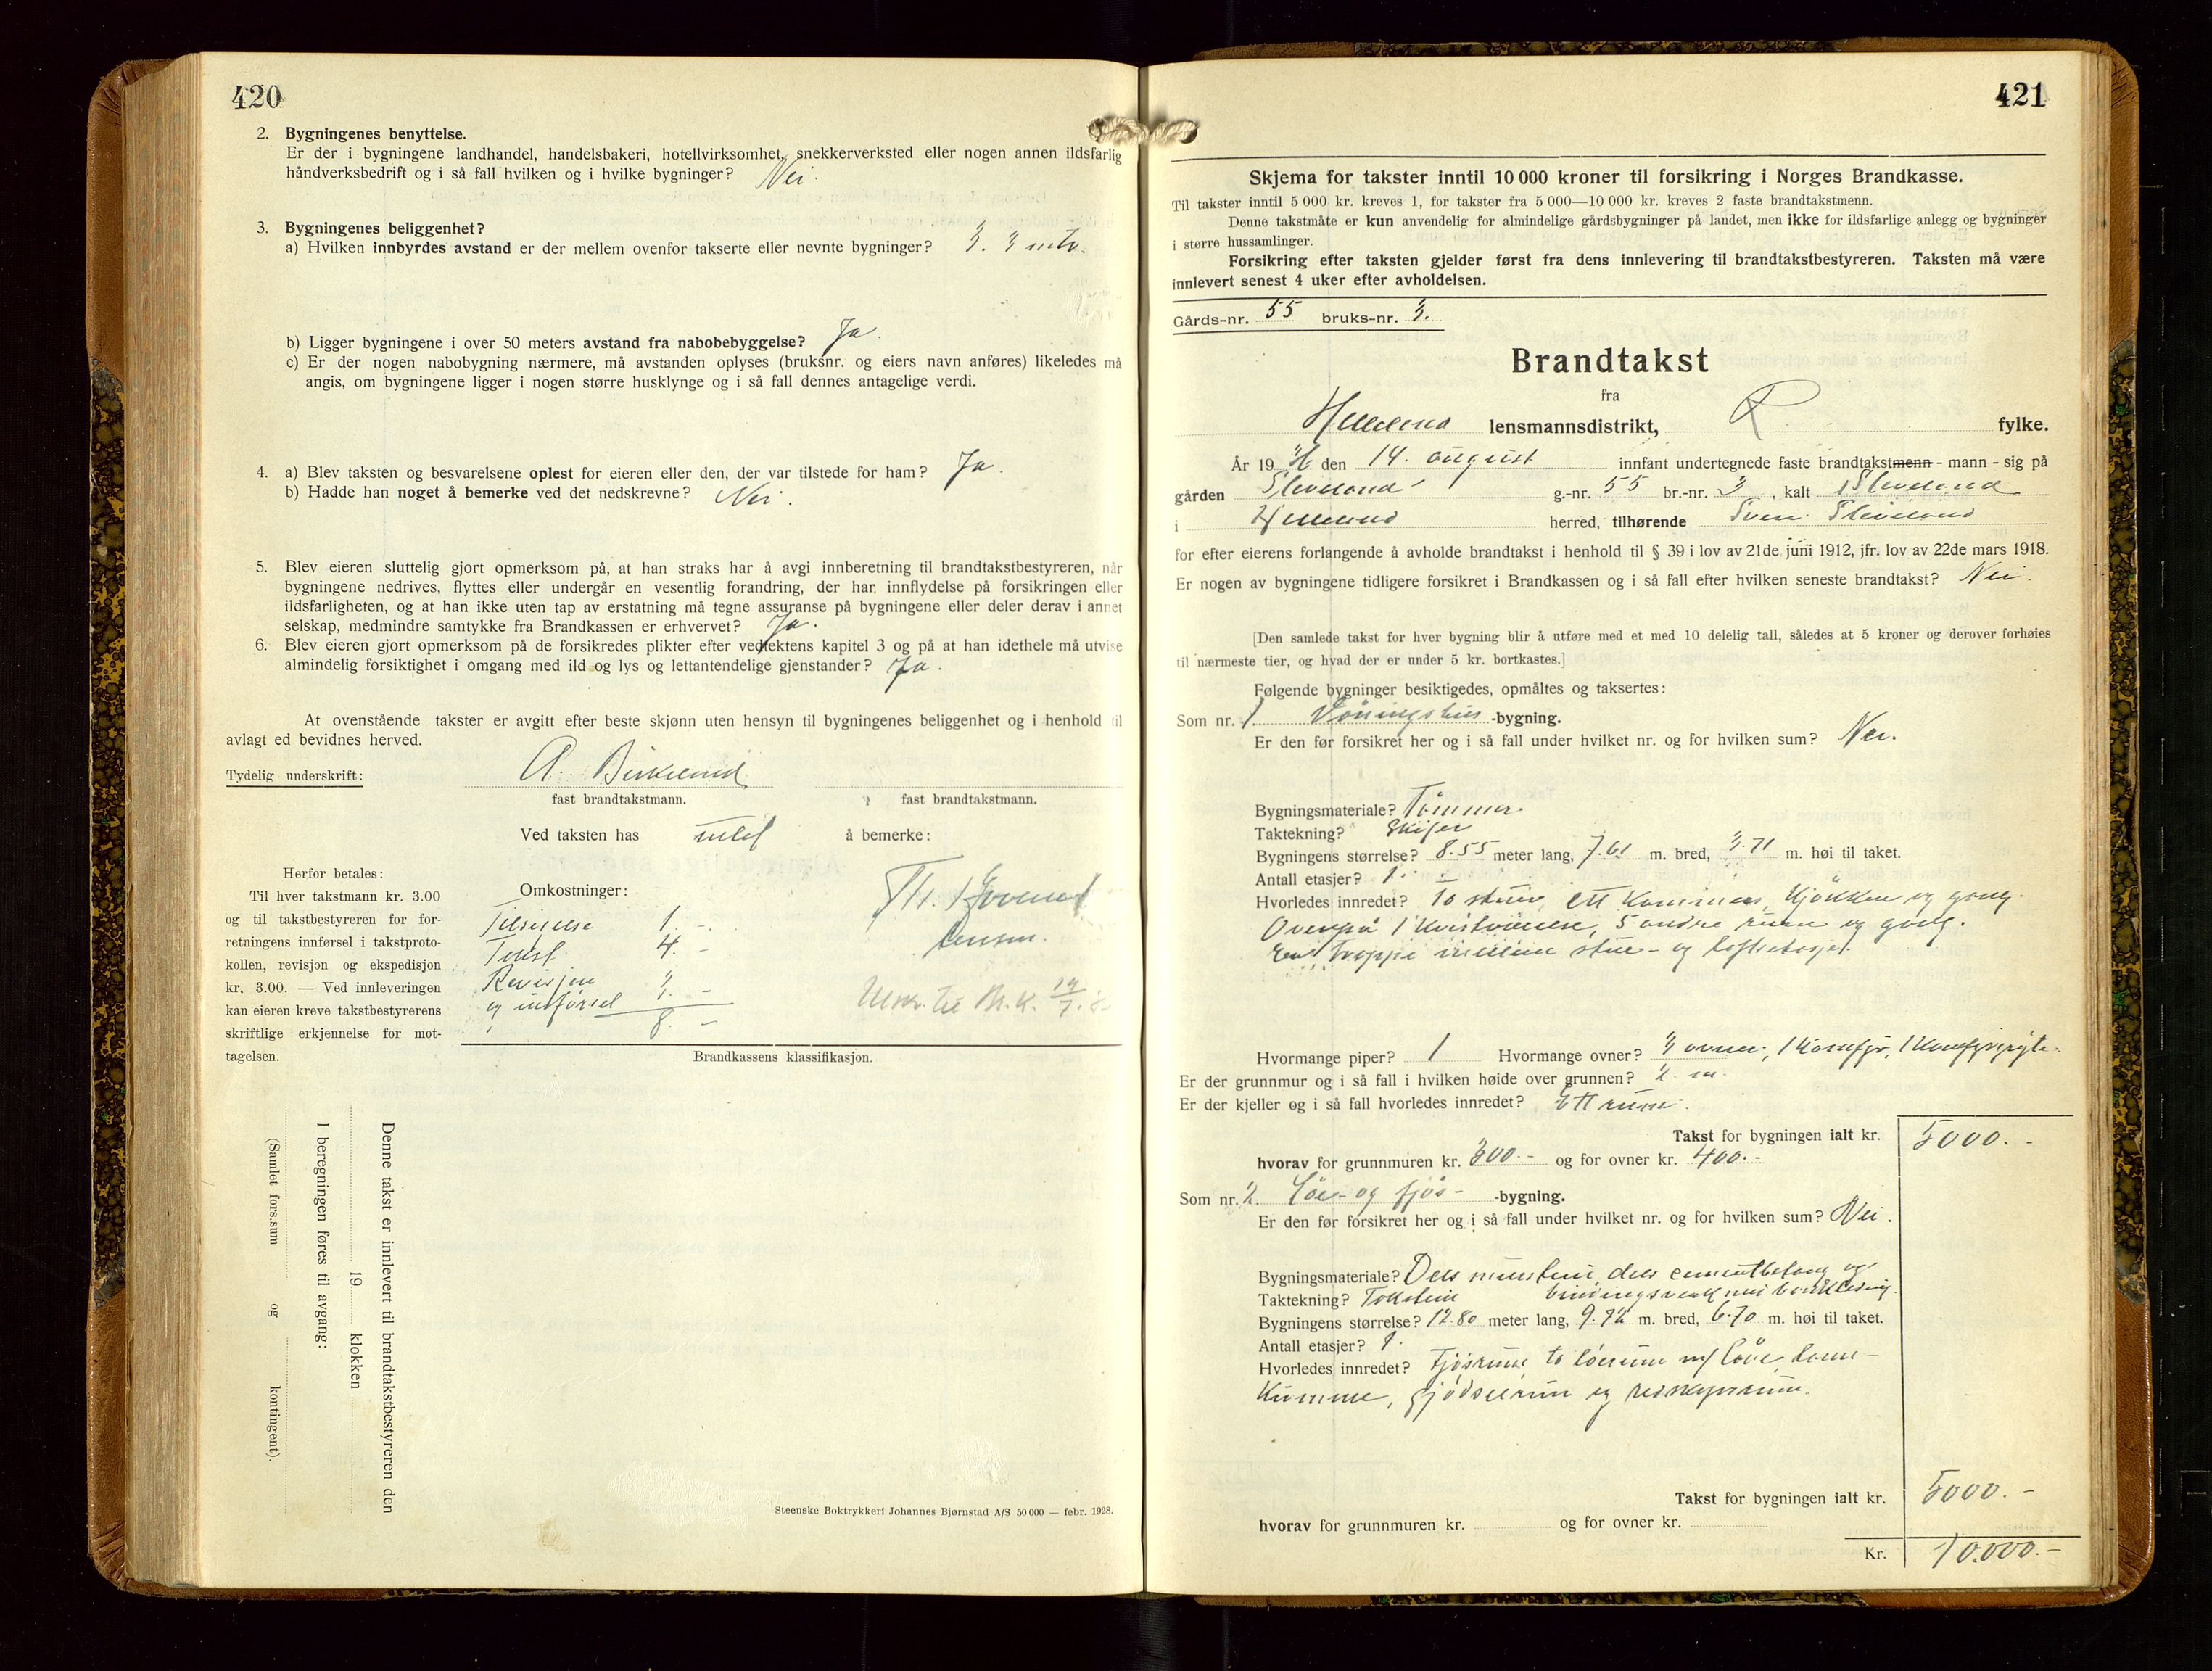 420
2. Bygningenes benyttelse.
Er der i bygningene landhandel, handelsbakeri, hotellvirksomhet, snekkerverksted eller nogen annen ildsfarlig
håndverksbedrift og i så fall hvilken og i hvilke bygninger? Nei.
3. Bygningenes beliggenhet?
a) Hvilken innbyrdes avstand er der mellem ovenfor takserte eller nevnte bygninger? 3. 3 mtr.
b) Ligger bygningene i over 50 meters avstand fra nabobebyggelse? Ja.
c) Er der nogen nabobygning nærmere, må avstanden oplyses (bruksnr. og eiers navn anføres) likeledes må
angis, om bygningene ligger i nogen større husklynge og i så fall dennes antagelige verdi.
4. a) Blev taksten og besvarelsene oplest for eieren eller den, der var tilstede for ham? Ja.
b) Hadde han noget å bemerke ved det nedskrevne? Nei.
5. Blev eieren sluttelig gjort opmerksom på, at han straks har å avgi innberetning til brandtakstbestyreren, når
bygningene nedrives, flyttes eller undergår en vesentlig forandring, der har innflydelse på forsikringen eller
ildsfarligheten, og at han ikke uten tap av erstatning må tegne assuranse på bygningene eller deler derav i annet
selskap, medmindre samtykke fra Brandkassen er erhvervet? Ja.
6. Blev eieren gjort opmerksom på de forsikredes plikter efter vedtektens kapitel 3 og på at han idethele må utvise
almindelig forsiktighet i omgang med ild og lys og lettantendelige gjenstander? Ja.
At ovenstående takster er avgitt efter beste skjønn uten hensyn til bygningenes beliggenhet og i henhold til
avlagt ed bevidnes herved.
Tydelig underskrift: A. Birkeland
fast brandtakstmann. fast brandtakstmann.
Ved taksten has intet å bemerke:
Herfor betales:
Til hver takstmann kr. 3.00
og til takstbestyreren for for-
retningens innførsel i takstproto-
kollen, revisjon og ekspedisjon
kr. 3.00. — Ved innleveringen
kan eieren kreve takstbestyrerens
skriftlige erkjennelse for mot-
tagelsen.
Omkostninger:
Tilsigelse 1. -
Takst 4. -
Revisjon
og innførsel 3. -
8. -
lensm.
Brandkassens klassifikasjon.
Denne takst er innlevert til brandtakstbestyreren den
19 klokken
I beregningen føres til avgang:
(Samlet fors.sum og kontingent).
Steenske Boktrykkeri Johannes Bjørnstad A/S 50 000 — febr. 1928.
421
Skjema for takster inntil 10 000 kroner til forsikring i Norges Brandkasse.
Til takster inntil 5 000 kr. kreves 1, for takster fra 5 000—10 000 kr. kreves 2 faste brandtakstmenn.
Denne takstmåte er kun anvendelig for almindelige gårdsbygninger på landet, men ikke for ildsfarlige anlegg og bygninger
i større hussamlinger.
Forsikring efter taksten gjelder først fra dens innlevering til brandtakstbestyreren. Taksten må være
innlevert senest 4 uker efter avholdelsen.
Gårds-nr. 55 bruks-nr. 3.
Brandtakst
fra
Helleland lensmannsdistrikt, R. fylke.
År 19 den 14. august innfant undertegnede faste brandtakstmenn - mann - sig på
gården Sleveland g.-nr. 55 br.-nr. 3, kalt Sleveland
i Helleland herred, tilhørende Sven Sleveland
for efter eierens forlangende å avholde brandtakst i henhold til § 39 i lov av 21de juni 1912, jfr. lov av 22de mars 1918.
Er nogen av bygningene tidligere forsikret i Brandkassen og i så fall efter hvilken seneste brandtakst? Nei.
[Den samlede takst for hver bygning blir å utføre med et med 10 delelig tall, således at 5 kroner og derover forhøies
til nærmeste tier, og hvad der er under 5 kr. bortkastes.]
Følgende bygninger besiktigedes, opmåltes og taksertes:
Som nr. 1 Våningshus -bygning.
Er den før forsikret her og i så fall under hvilket nr. og for hvilken sum? Nei.
Bygningsmateriale? Tømmer
Taktekning? Skifer
Bygningens størrelse? 8.55 meter lang, 7.61 m. bred, 3.71 m. høi til taket.
Antall etasjer? 1.
Hvorledes innredet? To stuer, ett kammers, kjøkken og gang.
Ovenpå 1 kvistværelse, 5 andre rum og gang.
En trappe mellem stue- og loftsetasjen.
Hvormange piper? 1 Hvormange ovner? 3 ovner, 1 komfyr, 1 komfyrgryte.
Er der grunnmur og i så fall i hvilken høide over grunnen? 2 m.
Er der kjeller og i så fall hvorledes innredet? Ett rum.
Takst for bygningen ialt kr. 5000. -
hvorav for grunnmuren kr. 300.- og for ovner kr. 400.-
Som nr. 2. Løe- og fjøs- -bygning.
Er den før forsikret her og i så fall under hvilket nr. og for hvilken sum? Nei.
Bygningsmateriale? Dels murstein, dels cementbetong og
Taktekning? Taksten bindingsverk med bordkledning.
Bygningens størrelse? 12.80 meter lang, 9.72 m. bred, 6.70 m. høi til taket.
Antall etasjer? 1.
Hvorledes innredet? Fjøsrum, to løerum m/ låve, land-
kumme, gjødselrum og redskapsrum.
Takst for bygningen ialt kr. 5000. -
hvorav for grunnmuren kr. og for ovner kr.
Kr. 10.000.-